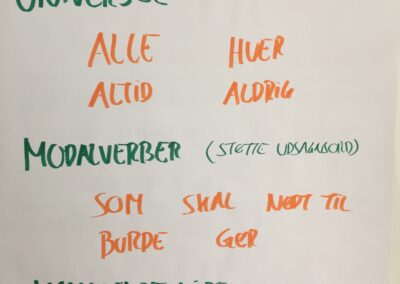 ALLE HVER
ALTID ALDRIG
MODALVERBER (STØTTE UDSAGNSORD)
SOM SKAL NØDT TIL
BURDE GØR